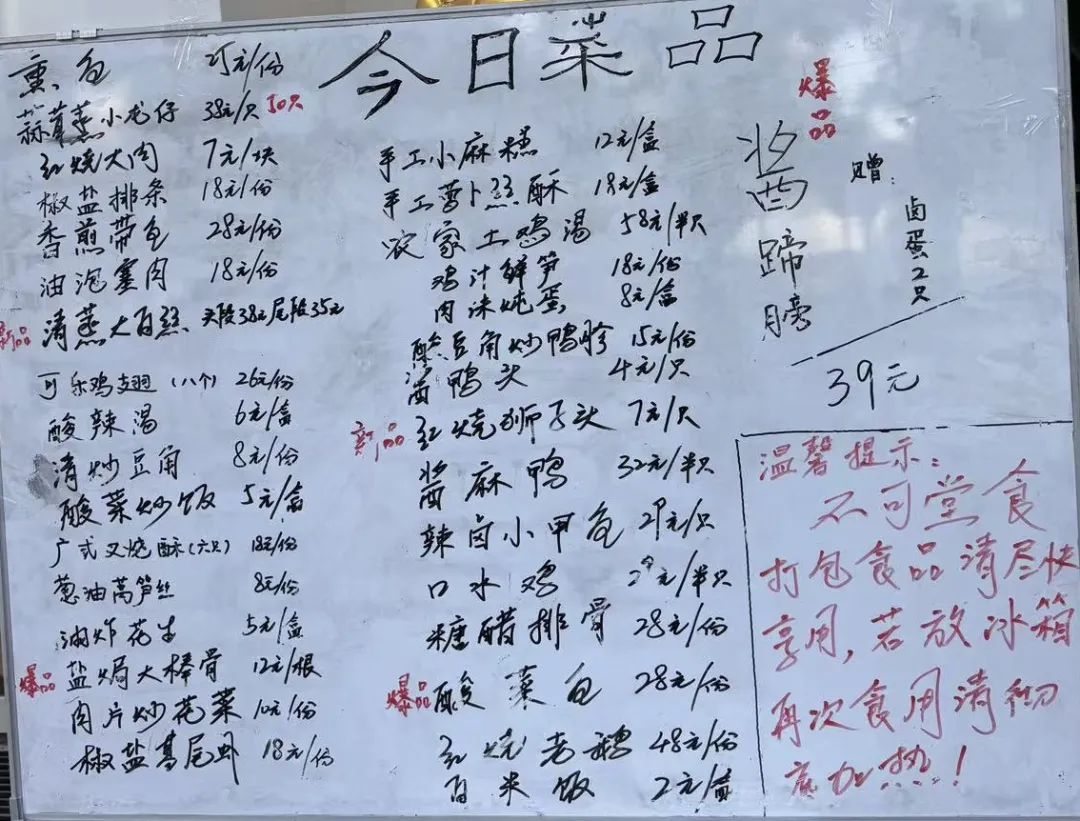 今日菜品
熏鱼 25元/份
蒜蓉蒸小龙仔 38元/只 50只
红烧大肉 7元/块
椒盐排条 18元/份
香煎带鱼 28元/份
油泡塞肉 18元/份
新品 清蒸大白丝 头段38元尾段35元
可乐鸡翅(八个) 26元/份
酸辣汤 6元/盒
清炒豆角 8元/份
酸菜炒饭 5元/盒
广式叉烧酥(六只) 18元/份
葱油莴笋丝 8元/份
油炸花生 5元/盒
爆品 盐焗大棒骨 12元/根
肉片炒花菜 10元/份
椒盐基尾虾 18元/份
手工小麻糕 12元/盒
手工萝卜丝酥 18元/盒
农家土鸡汤 58元/半只
鸡汁鲜笋 18元/份
肉沫炖蛋 8元/盒
酸豆角炒鸭胗 15元/份
酱鸭头 4元/只
新品 红烧狮子头 7元/只
酱麻鸭 32元/半只
辣卤小甲鱼 29元/只
口水鸡 29元/半只
糖醋排骨 28元/份
爆品 酸菜鱼 28元/份
红烧老鹅 48元/份
白米饭 2元/盒
爆品
酱蹄膀
赠:
卤蛋2只
39元
温馨提示:
不可堂食
打包食品请尽快
享用,若放冰箱
再次食用请彻
底加热!